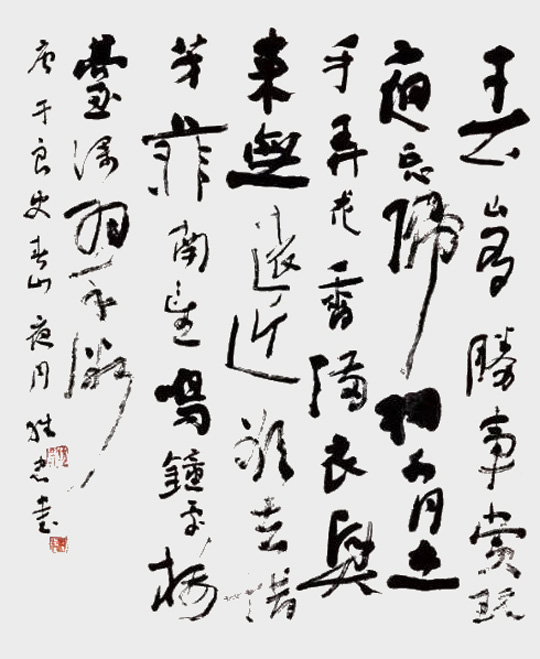 春山多勝事賞玩
夜忘歸掬水月在
手弄花香滿衣興
來無遠近欲去惜
芳菲南望鳴鐘處樓
臺深翠微
唐于良史春山夜月忠書